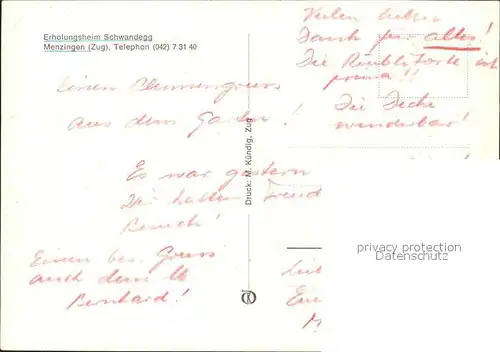 Erholungsheim Schwandegg
Menzingen (Zug), Telephon (042) 7 31 40
Einen Blumengruss
aus dem Garten!
Es war gestern
Wir hatten Freud
Besuch!
Einen bes. Gruss
auch dem
Bernhard!
Druck: M. Kündig, Zug
Vielen lieben
Dank für alles!
Die Rüeblitorte ist
prima!!
Die Decke
wunderbar!
privacy protection
Datenschutz